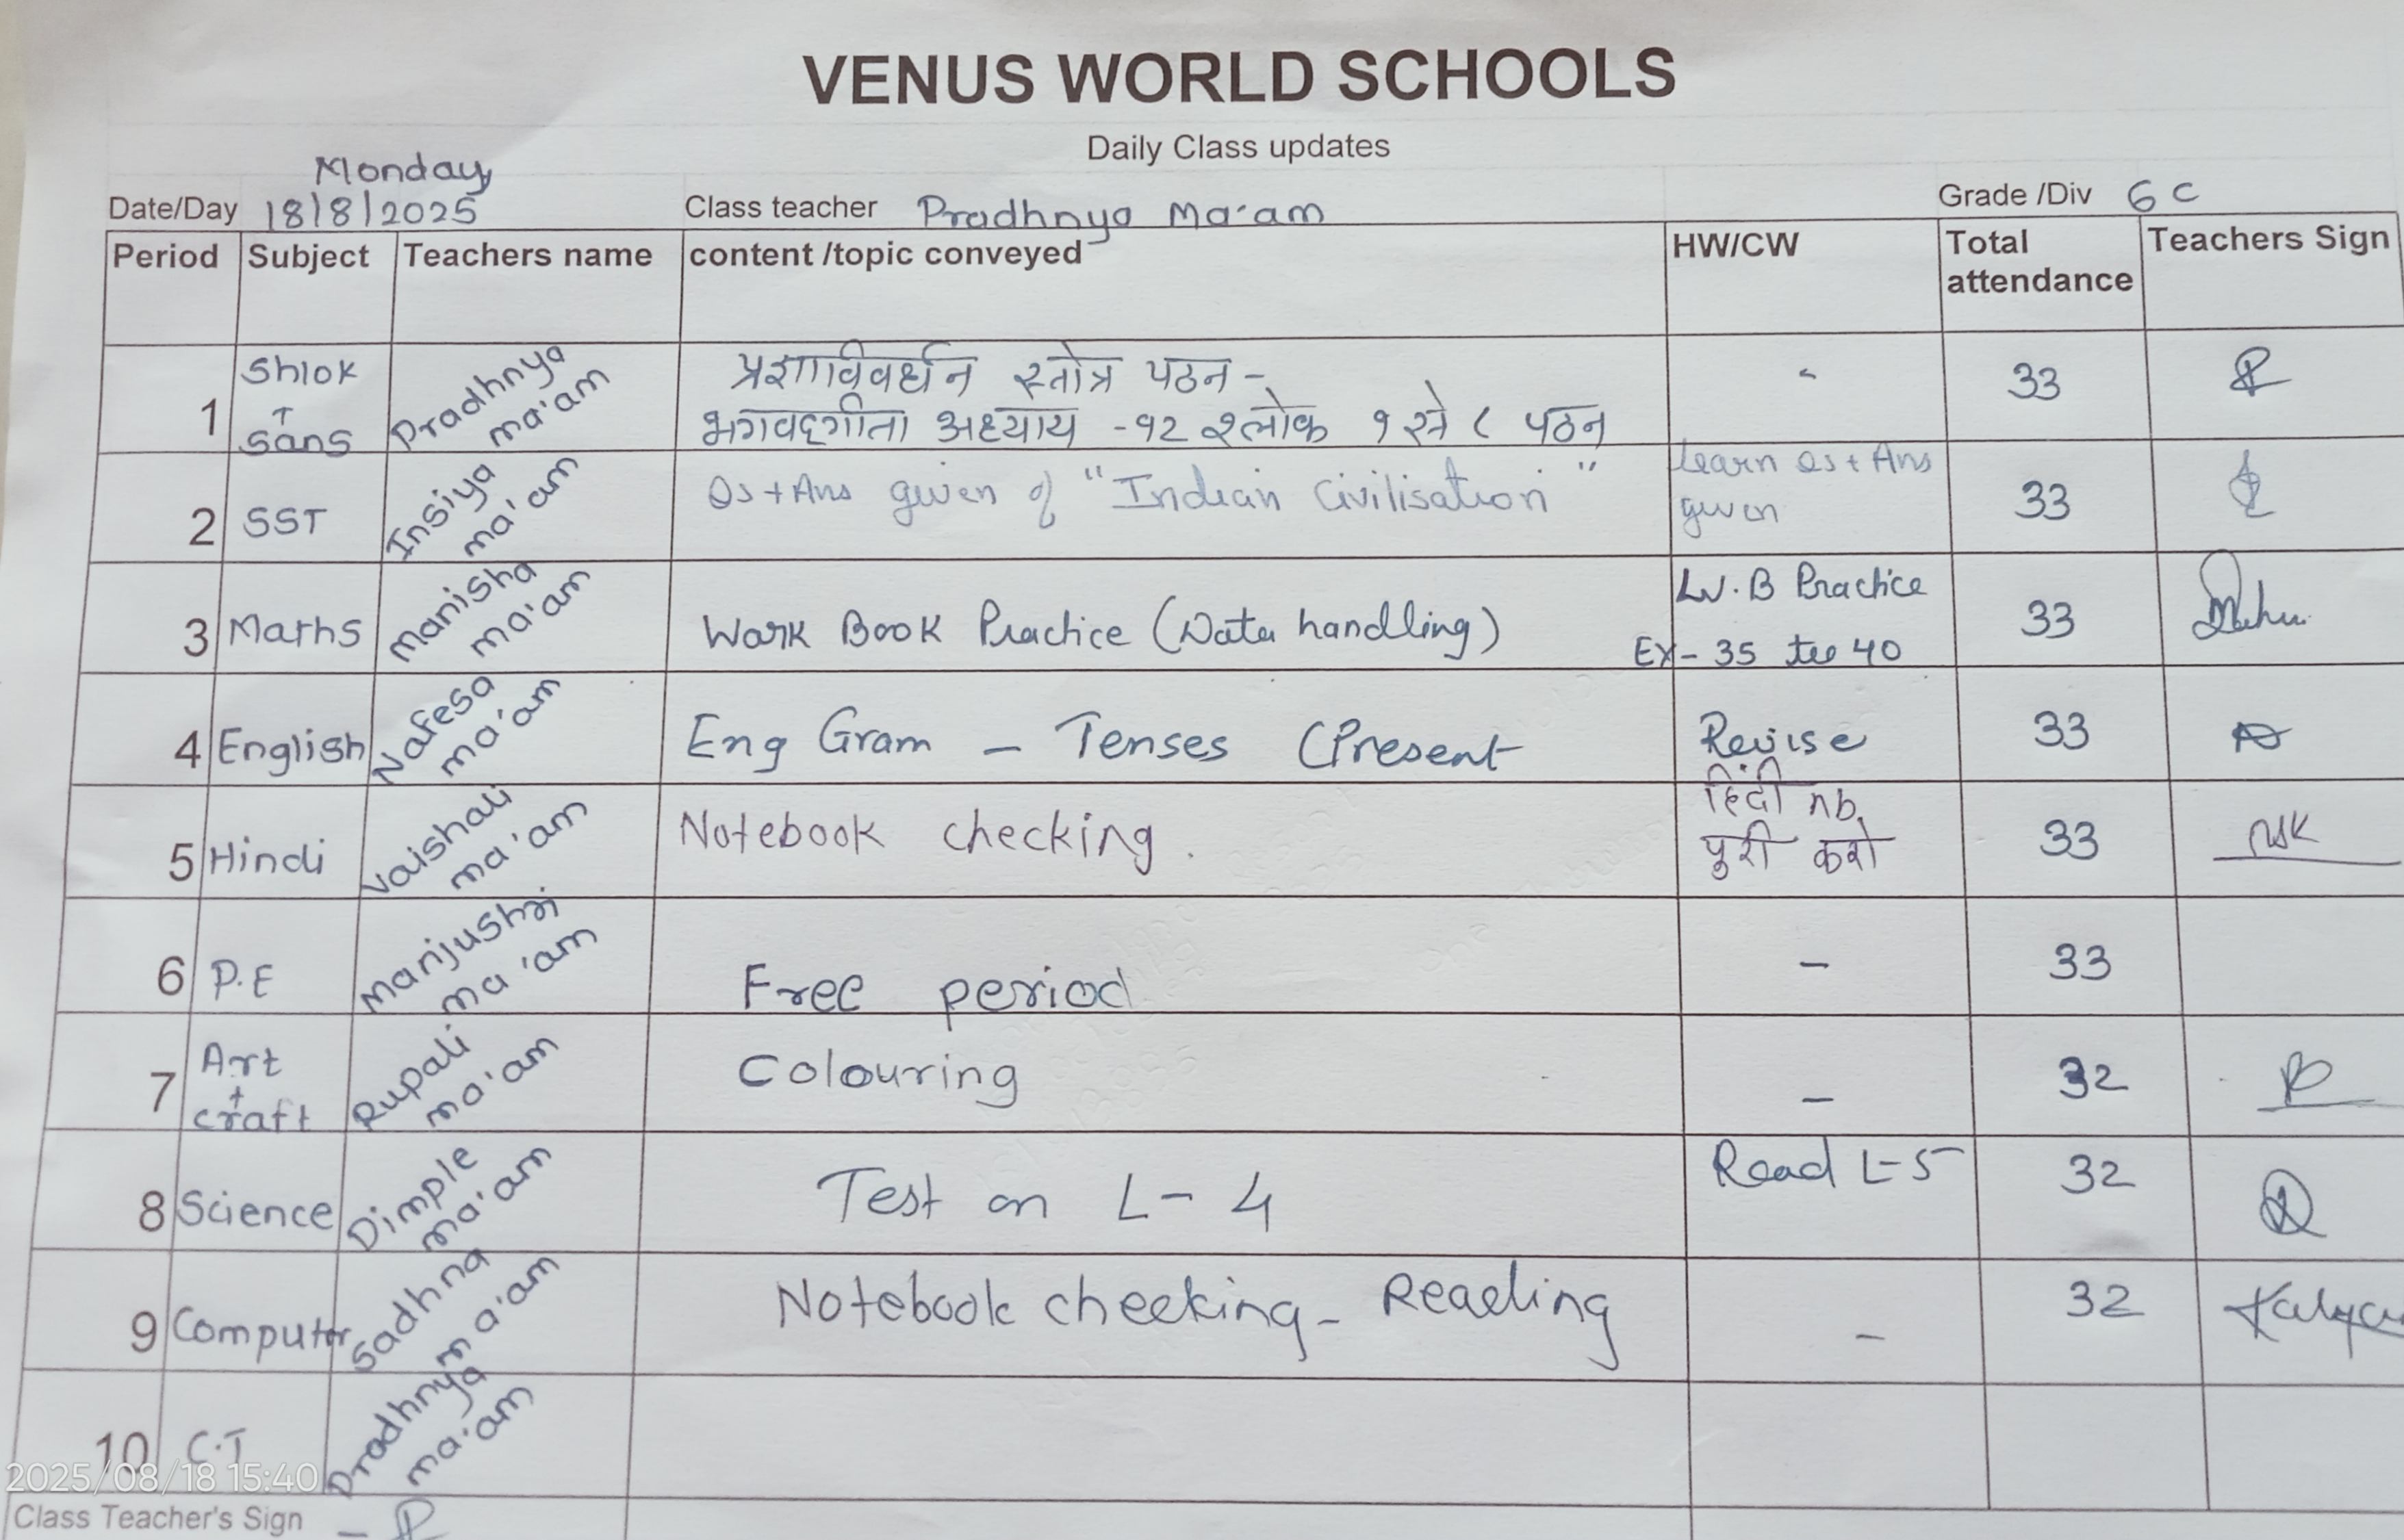 VENUS WORLD SCHOOLS
Daily Class updates
Monday
Date/Day 18/8/2025 Class teacher Pradhnya Ma'am Grade /Div 6 C
Period Subject Teachers name content /topic conveyed HW/CW Total attendance Teachers Sign
1 Shlok + sans Pradhnya ma'am प्रज्ञाविवर्धन स्तोत्र पठन - - 33
भगवद्गीता अध्याय - १२ श्लोक १ से ८ पठन
2 SST Insiya ma'am Qs + Ans given of "Indian Civilisation" Learn Qs + Ans given 33
3 Maths Manisha ma'am Work Book Practice (Data handling) W.B Practice 33
Ex - 35 to 40
4 English Nafesa ma'am Eng Gram - Tenses (Present Revise 33
5 Hindi Vaishali ma'am Notebook checking. हिंदी nb. पुरी करो 33
6 P.E Manjushri ma'am Free period - 33
7 Art + craft Rupali ma'am Colouring - 32
8 Science Dimple ma'am Test on L - 4 Read L-5 32
9 Computer Sadhna ma'am Notebook checking - Reading - 32
10 C.T Pradhnya ma'am
2025/08/18 15:40
Class Teacher's Sign